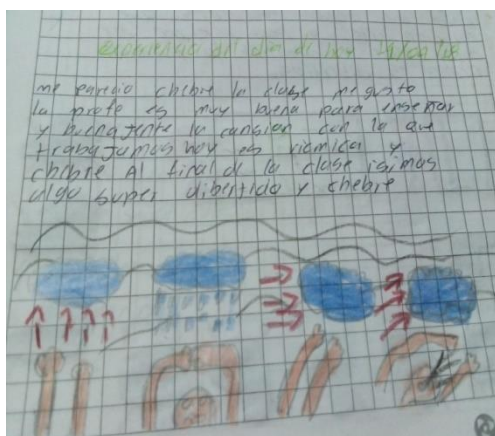 experiencia del dia de hoy 19/09/18
me parecio chebre la clase me gusto
la profe es muy buena para enseñar
y buena jente la cansion con la que
trabajamos hoy es ricmica y
chebre Al final de la clase isimos
algo super dibertido y chebre